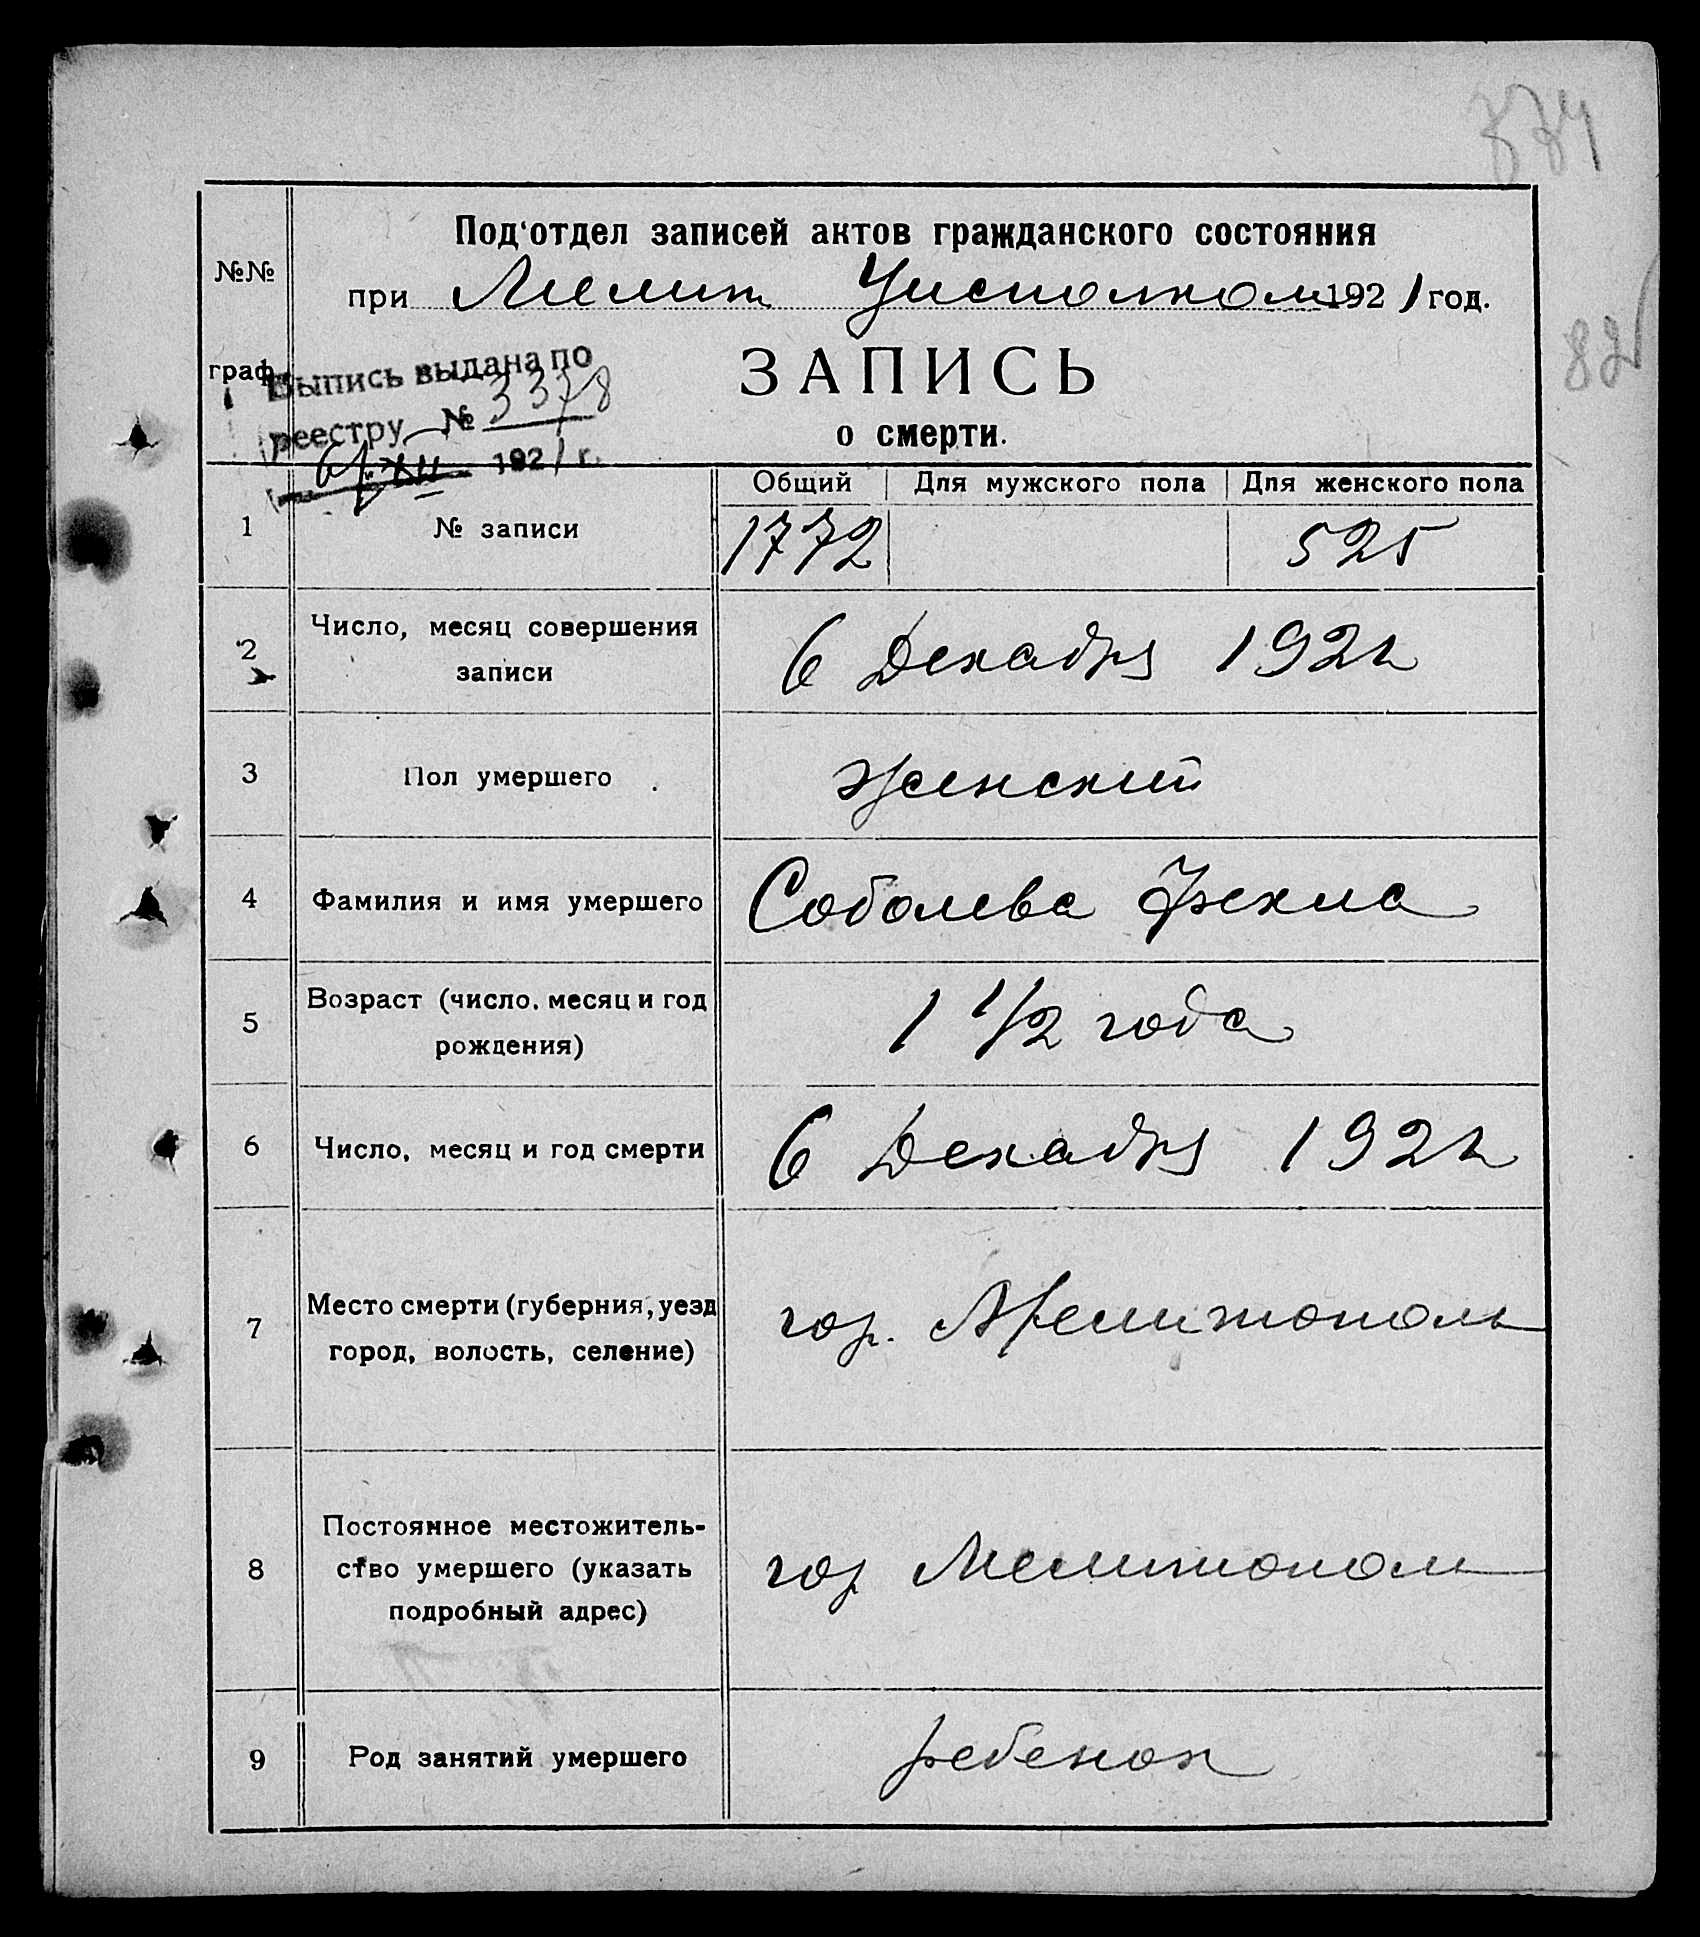 774
Под'отдел записей актов гражданского состояния
№№
при Мелит Уисполком 1921 год.
82
граф.
Выпись выдана по
реестру № 3378
6/XII 1921 г.
ЗАПИСЬ
о смерти.
Общий Для мужского пола Для женского пола
1 № записи 1772 525
2 Число, месяц совершения
записи
6 Декабря 1921
3 Пол умершего женский
4 Фамилия и имя умершего Соболева Фекла
5 Возраст (число, месяц и год
рождения)
1 1/2 года
6 Число, месяц и год смерти 6 Декабря 1921
7 Место смерти (губерния, уезд
город, волость, селение)
гор. Мелитополь
8 Постоянное местожитель-
ство умершего (указать
подробный адрес)
гор Мелитополь
9 Род занятий умершего ребенок